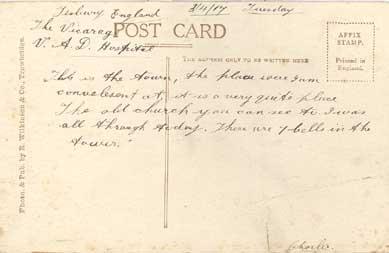 England
3/4/17 Tuesday
The Vicarage
V. A. D. Hospital
POST CARD
AFFIX
STAMP.
Printed in
England.
THE ADDRESS ONLY TO BE WRITTEN HERE
This is the town, the place were I am
convelesent at, it is a very quite place
The old church you can see to. I was
all through today. There are 7 bells in the
tower."
Charlie.
Photo. & Pub. by R. Wilkinson & Co., Trowbridge.